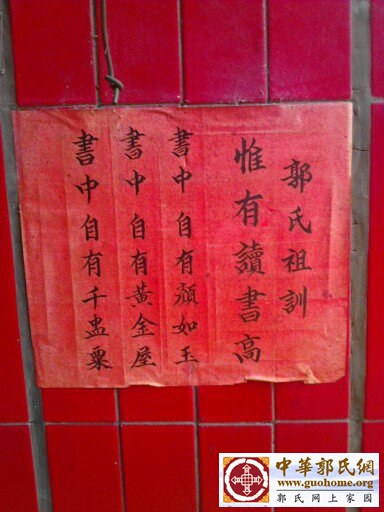 郭氏祖訓
惟有讀書高
書中自有顏如玉
書中自有黃金屋
書中自有千盅粟
中華郭氏網
www.guohome.org
郭氏网上家园